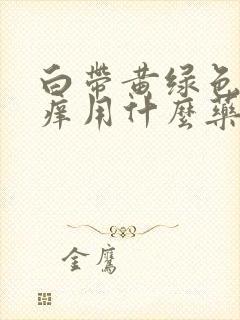 白帶黄绿色
痒用什麼藥
金鷹